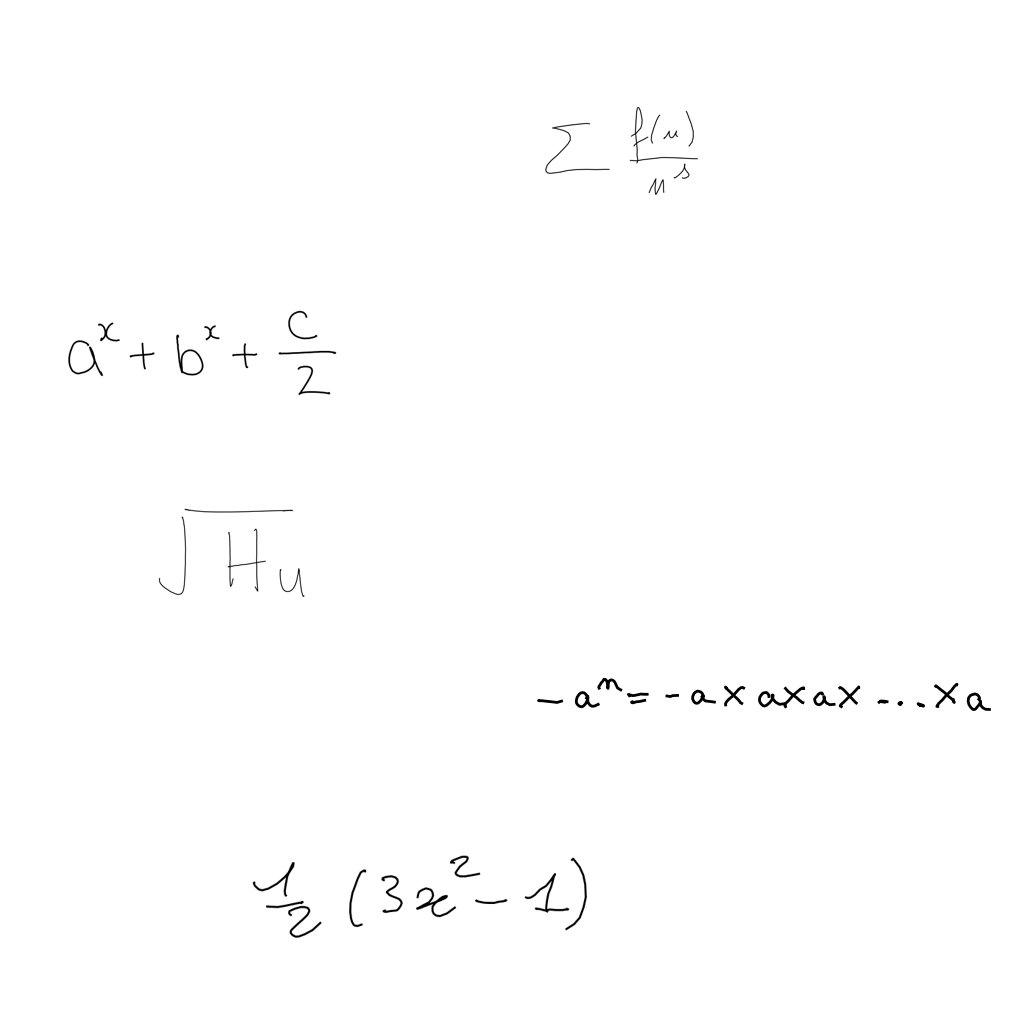 \sum \frac{f(n)}{n^s}
a^x + b^x + \frac{c}{2}
\sqrt{Hu}
-a^n = -a \times a \times a \times \ldots \times a
\frac{1}{2} (3x^2 - 1)